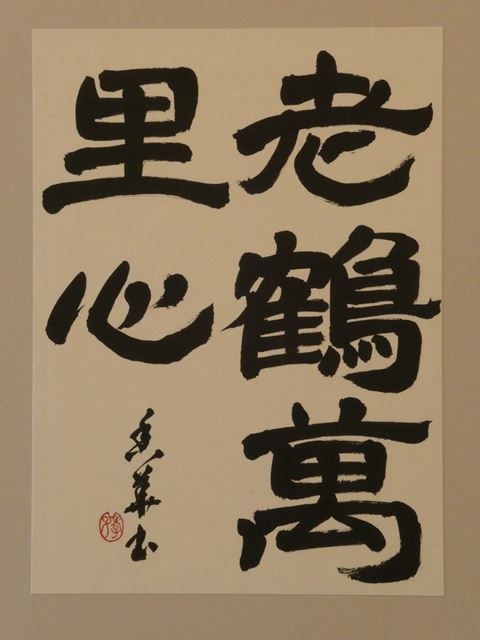 老鶴萬
里心
香華書